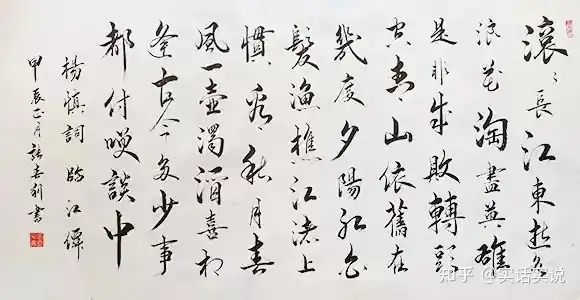 滾〻長江東逝水
浪花淘盡英雄
是非成敗轉頭
空青山依舊在
幾度夕陽紅白
髮漁樵江渚上
慣看秋月春
風一壺濁酒喜相
逢古今多少事
都付笑談中
楊慎詞臨江僊
甲辰正月利書
知乎 @实话实说